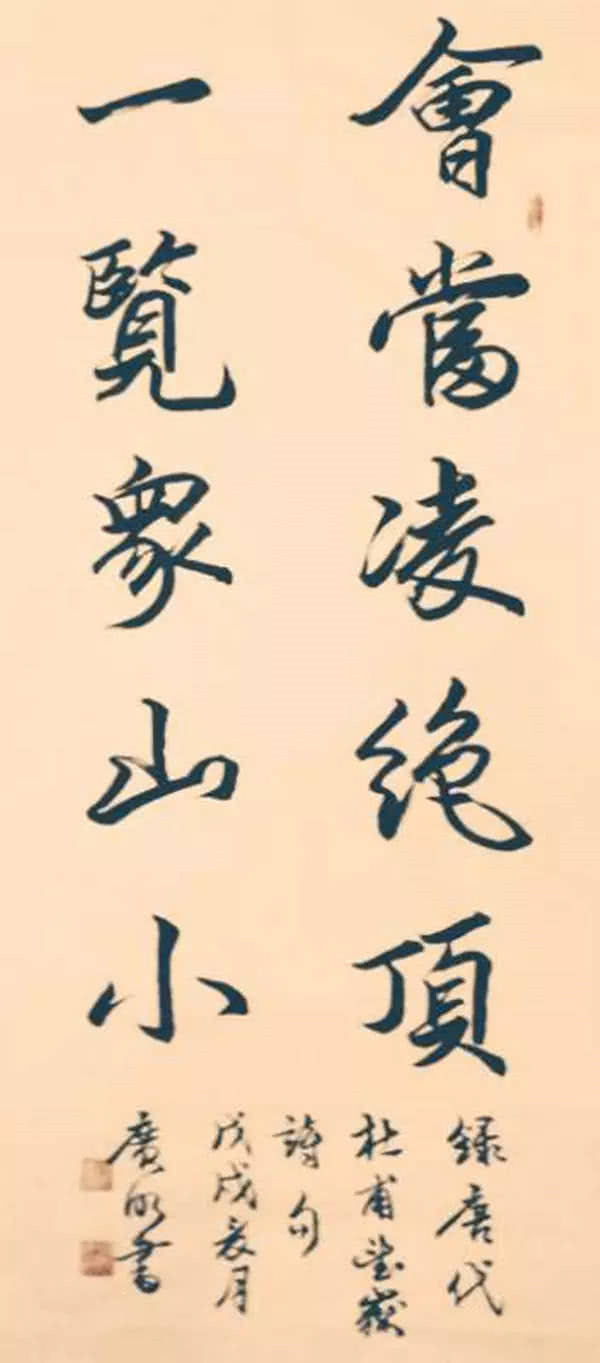 會當凌絕頂
一覽眾山小
錄唐代
杜甫望嶽
詩句
戊戌夏月
廣明書